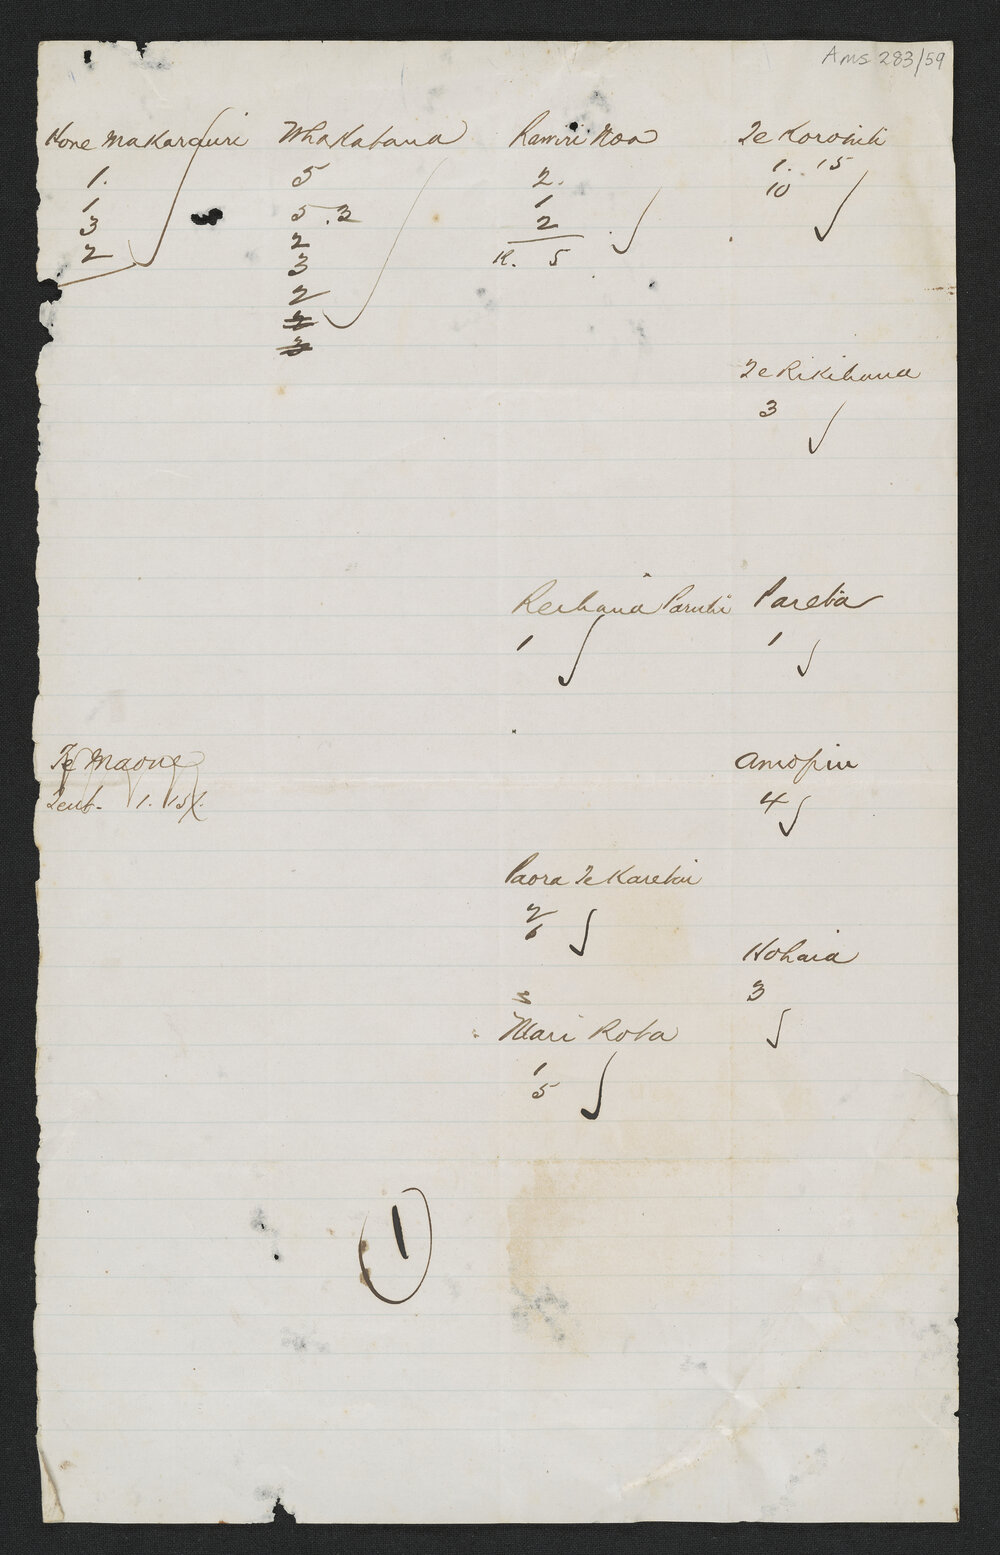 Ams 283/59
Hone Makarauri
1.
1
3
2
Whakatana
5
5.2
2
3
2
2
3
Ramiri Noa
2.
1
2
R. 5
Te Korohiti
1. 15
10
Te Rikihana
3
Reihana Paruhi
1
Pareta
1
Te Maone
Tent- 1. 15/.
Amopiu
4
Paora Te Karetai
2
6
Hohaia
3
3
Mari Rota
1
5
1